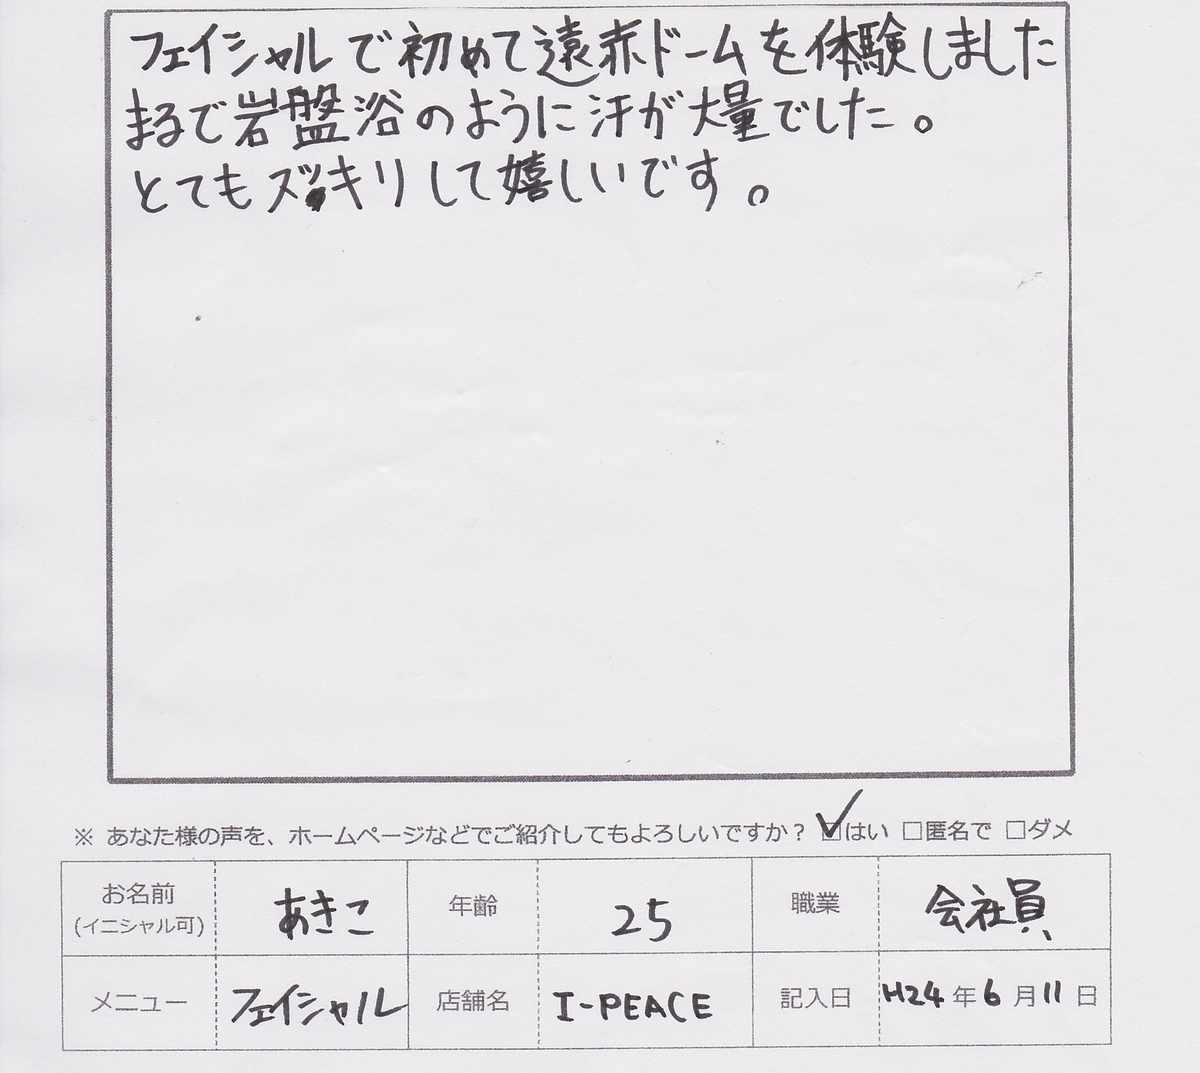 フェイシャルで初めて遠赤ドームを体験しました
まるで岩盤浴のように汗が大量でした。
とてもズッキリして嬉しいです。
※ あなた様の声を、ホームページなどでご紹介してもよろしいですか？ ☑はい □匿名で □ダメ
お名前 (イニシャル可) あきこ 年齢 25 職業 会社員
メニュー フェイシャル 店舗名 I-PEACE 記入日 H24年6月11日